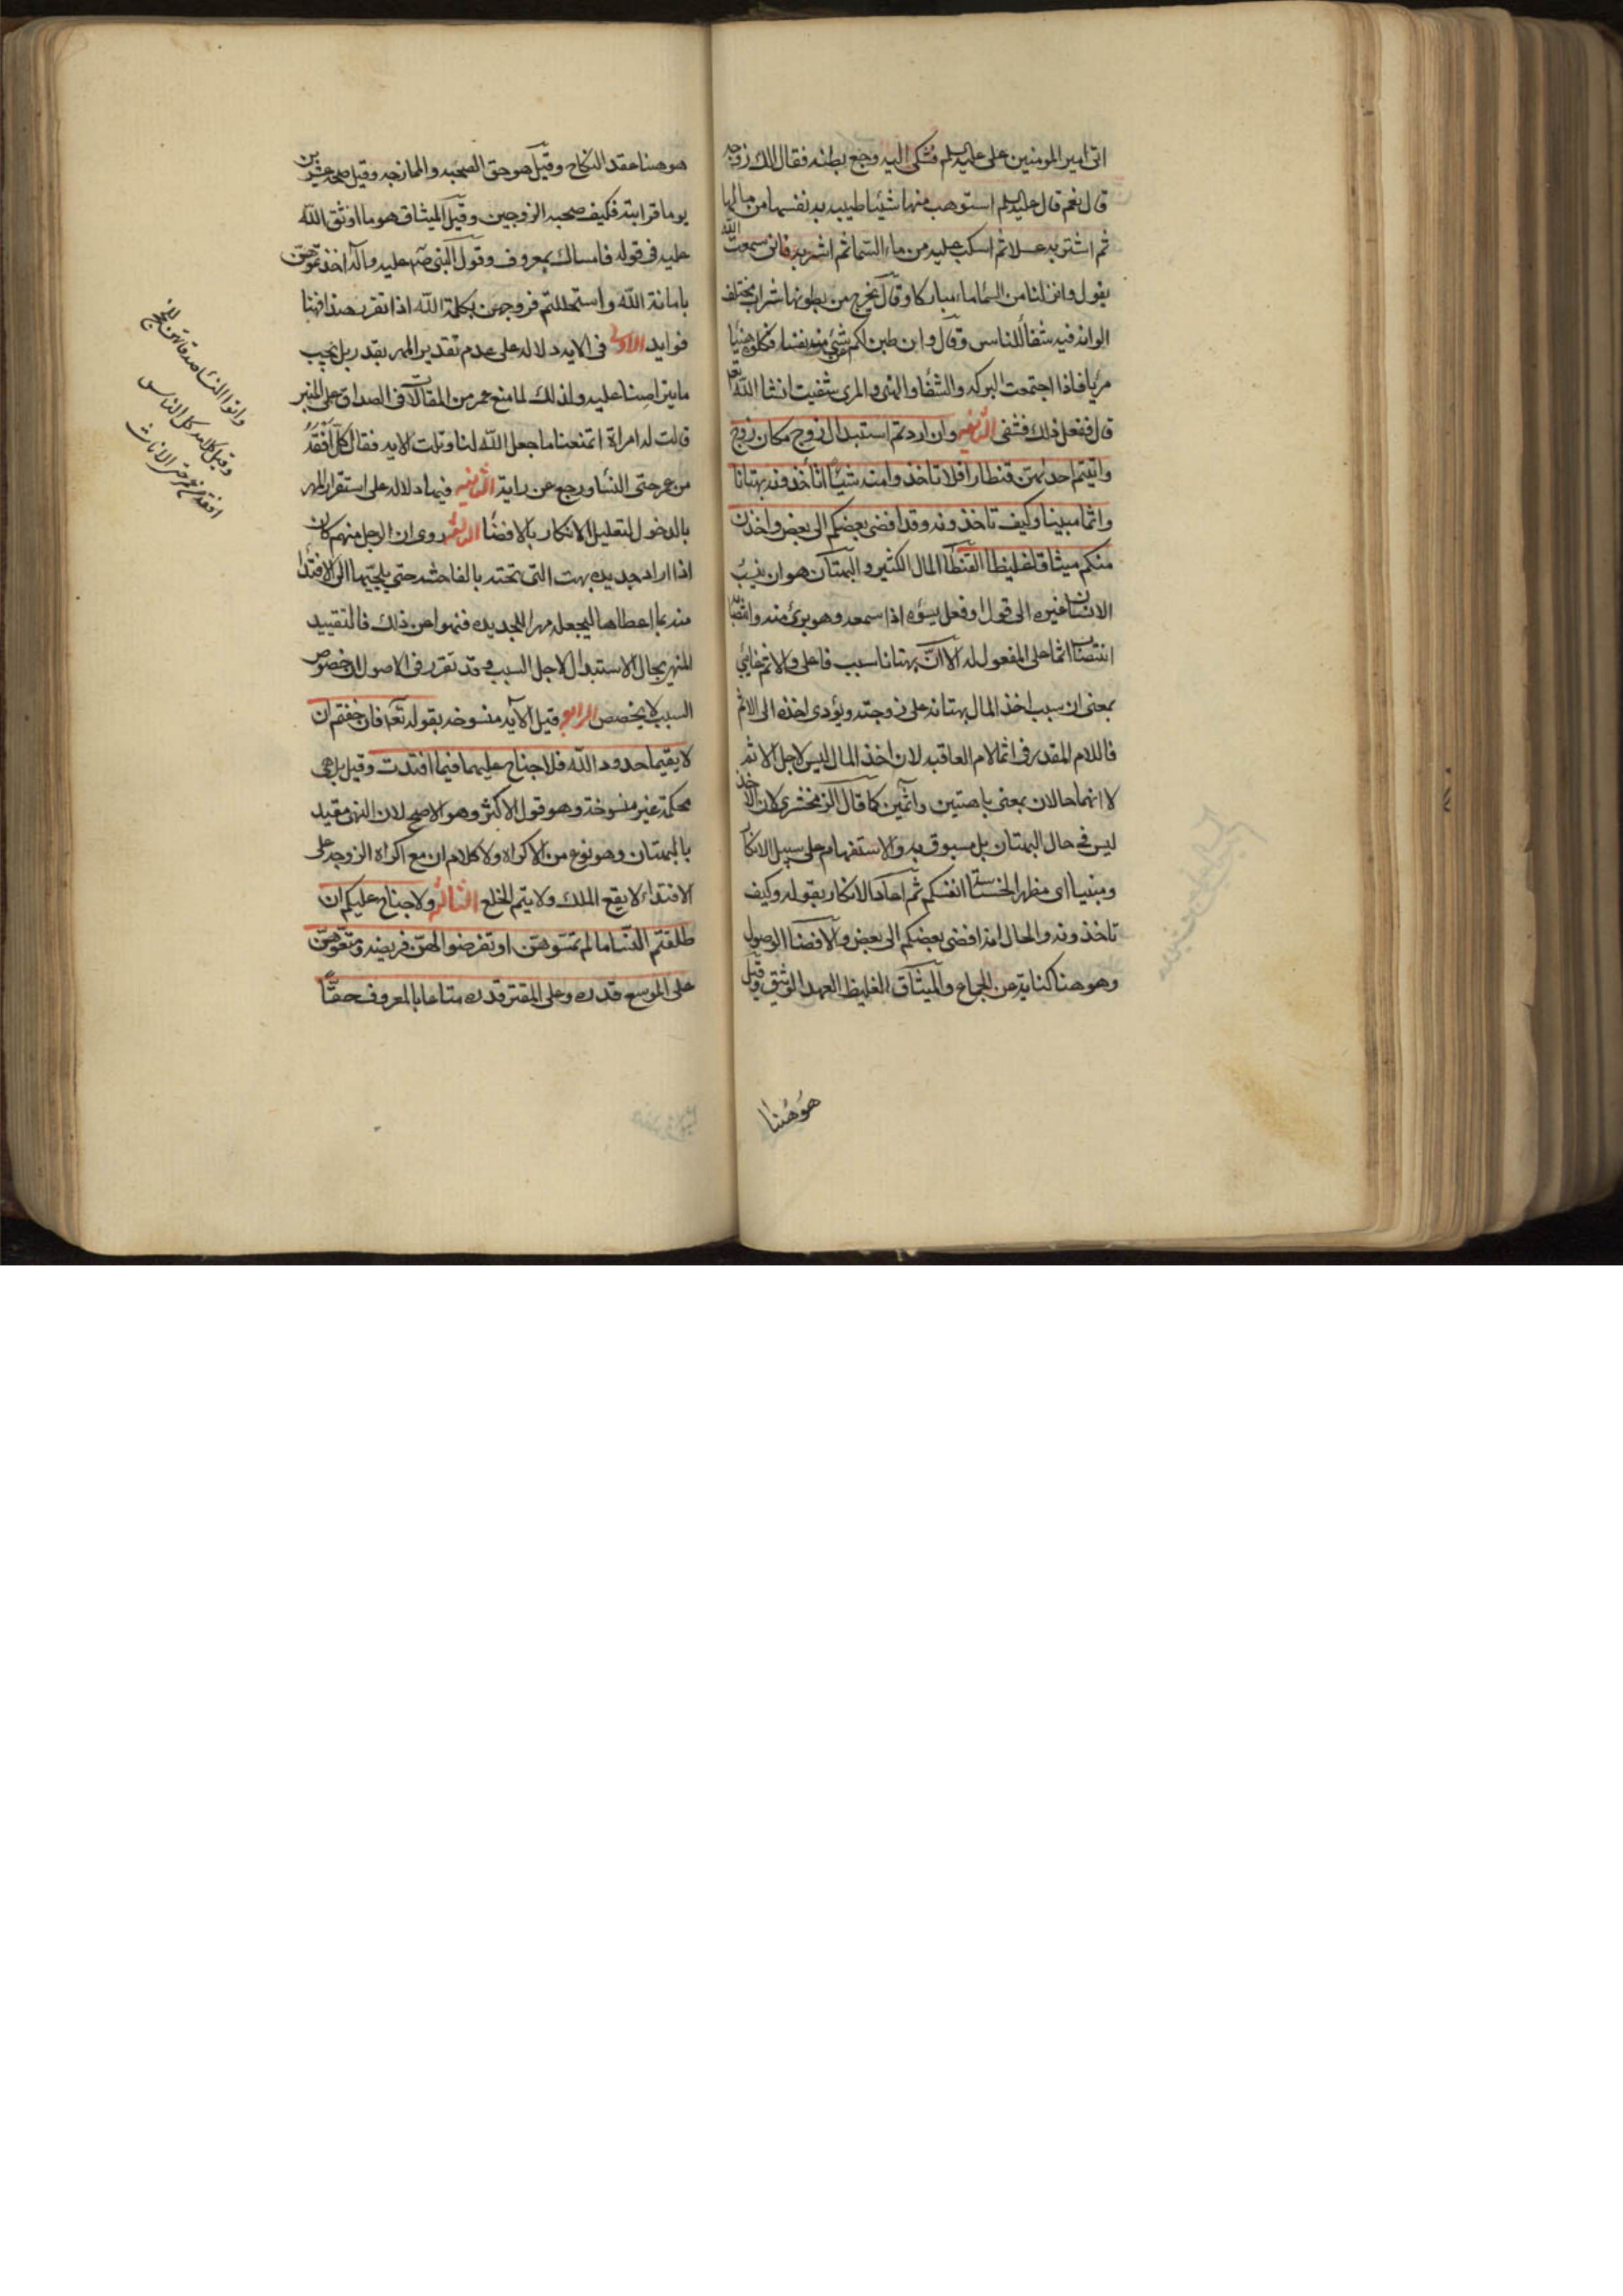 اتى امير المومنين على عليه السلم فشكى اليه وجع بطنه فقال الك زوجه
قال نعم قال عليه السلم استوهب منها شيئا طيبه به نفسها من مالها
ثم اشتر به عسلا ثم اسكب عليه من ماء السما ثم اشربه فانى سمعت الله
يقول وانزلنا من السماء ماء مباركا وقال يخرج من بطونها شراب مختلف
الوانه فيه شفا للناس وقال وان طبن لكم عن شيئ منه نفسا فكلوه هنيا
مريا فاذا اجتمعت البركه والشفا والهنى والمرى شفيت انشا الله تعالى
قال ففعل ذلك فشفى الثانيه وان اردتم استبدال زوج مكان زوج
واتيتم احديهن قنطارا فلا تاخذوا منه شيئا اتأخذونه بهتانا
واثما مبينا وكيف تاخذونه وقد افضى بعضكم الى بعض واخذن
منكم ميثاقا غليظا القنطار المال الكثير والبهتان هو ان ينسب
الانسان غيره الى قول او فعل يسؤه اذا سمعه وهو برئ منه وانتصابه
انتصاب اثما على المفعول له الا ان بهتانا سبب فاعلى والاثم غايئ
بمعنى ان سبب اخذ المال بهتانه على زوجته ويؤدى اخذه الى الاثم
فاللام المقدر فى اثما لام العاقبه لان اخذ المال ليس لاجل الاثم
لا انهما حالان بمعنى باهتين واثمين كما قال الزمخشرى لان الاخذ
ليس فى حال البهتان بل مسبوق به والاستفهام على سبيل الانكار
ومبنيا اى مظهرا لخسة انفسكم ثم اعاد الانكار بقوله وكيف
تاخذونه والحال انه افضى بعضكم الى بعض والافضا الوصول
وهو هنا كناية عن الجماع والميثاق الغليظ العهد الوثيق وقيل
هو هنا
هو هنا عقد النكاح وقيل هو حق الصحبه والممازجه وقيل صحبه عشرين
يوما قرابته فكيف صحبه الزوجين وقيل الميثاق هو ما اوثق الله
عليه فى قوله فامساك بمعروف وقول النبى صلى الله عليه وآله اخذتموهن
بامانة الله واستحللتم فروجهن بكلمة الله اذا تقرر هذا فهنا
فوايد الاولى فى الايه دلاله على عدم تقدير المهر بقدر بل يجب
ما يتراضيا عليه ولذلك لما منع عمر من المغالات فى الصداق على المنبر
قالت له امراة اتمنعنا ما جعل الله لنا وتلت الايه فقال كل افقه
من عمر حتى النسأ ورجع عن رايه الثانيه فيها دلاله على استقرار المهر
بالدخول لتعليل الانكار بالافضا الثالثه روى ان الرجل منهم كان
اذا اراد جديده بهت التى تحته بالفاحشه حتى يلجئها الى الافتدا
منه بما اعطاها ليجعله مهرا للجديده فنهوا عن ذلك فالتقييد
للنهى بحال الاستبدال لاجل السبب وقد تقرر فى الاصول ان خصوص
السبب لا يخصص الرابع قيل الآيه منسوخه بقوله تعا فان خفتم ان
لا يقيما حدود الله فلا جناح عليهما فيما افتدت وقيل بل هى
محكمة غير منسوخة وهو قول الاكثر وهو الاصح لان النهى مقيد
بالبهتان وهو نوع من الاكراه ولا كلام ان مع اكراه الزوجه على
الافتداء لا يقع الملك ولا يتم الخلع الثالثه ولا جناح عليكم ان
طلقتم النسا ما لم تمسوهن او تفرضوا لهن فريضه ومتعوهن
على الموسع قدره وعلى المقتر قدره متاعا بالمعروف حقا
واتوا النسا صدقاتهن
وقيل كلامه كل الناس
افقه من عمر حتى الاناث